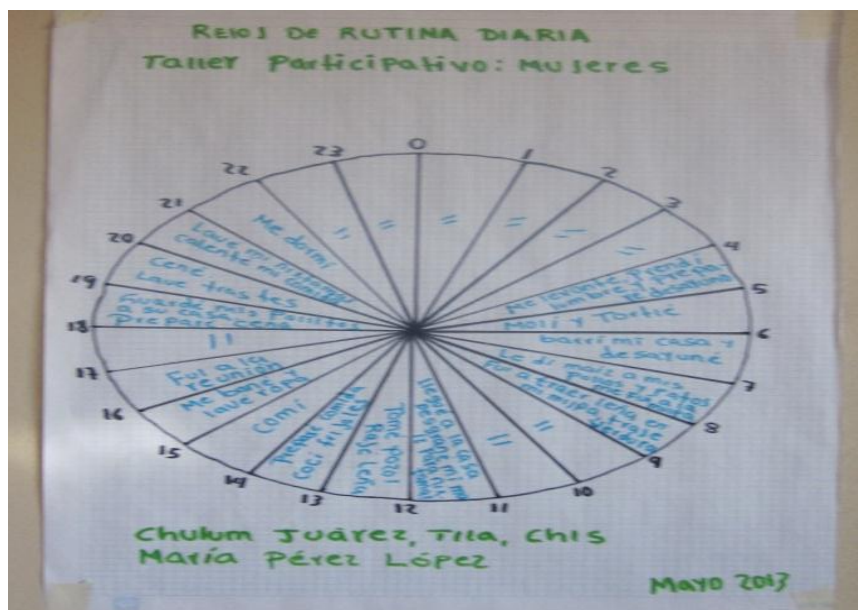 RELOJ DE RUTINA DIARIA
Taller Participativo: Mujeres
0
1
2
3
4
5
6
7
8
9
10
11
12
13
14
15
16
17
18
19
20
21
22
23
"
"
"
"
Me levanté, Prendí
lumbre y Prepa
Molí y Tortié
barrí mi casa y
desayuné
Le di maíz a mis
Fui a traer leña en
mi milpa, traje
"
"
llegué a la casa
desgrané mi maíz
Tomé pozol
Rajé Leña
Preparé comida
Cocí frijoles
Comí
Me bañé
lavé ropa
Fui a la
reunión
"
Guardé mis Pollitos
a su casa
Preparé cena
Cené
Lavé trastes
Lavé mi nixtamal
calenté mi
Me dormí
"
Chulum Juárez, Tila, Chis
María Pérez López
Mayo 2013